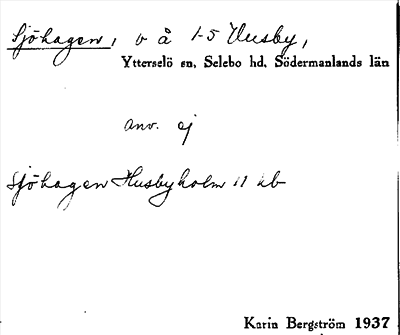 Sjöhagen, v å 1-5 Husby,
Ytterselö sn, Selebo hd, Södermanlands län
anv. ej
Sjöhagen Husbyholm 11 ab
Karin Bergström 1937